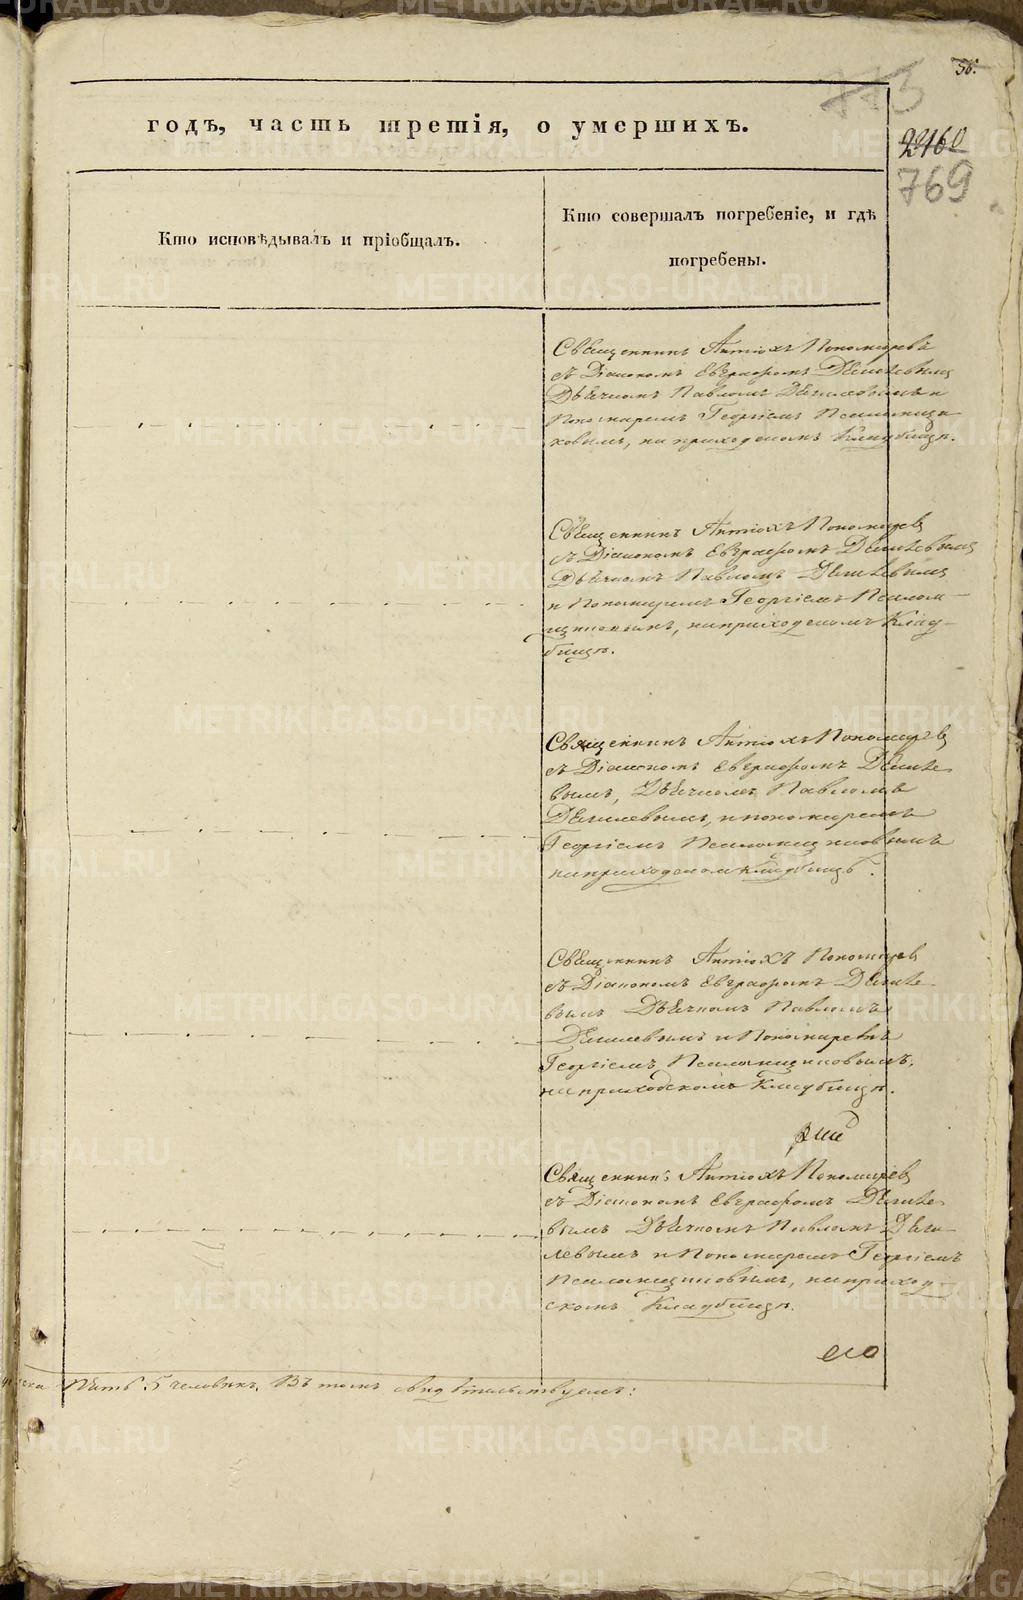 56.
775
2216
769
годъ, часть третія, о умершихъ.
Кто исповѣдывалъ и пріобщалъ.
Кто совершалъ погребеніе, и гдѣ
погребены.
Священникъ Антіохъ Пономаревъ
съ Діакономъ Евграфомъ
Дьячкомъ Павломъ
Пономаремъ Георгіемъ Псаломщи
ковымъ, на приходскомъ Кладбищѣ.
Священникъ Антіохъ Пономаревъ
съ Діакономъ Евграфомъ
Дьячкомъ Павломъ
и Пономаремъ Георгіемъ Псалом-
щиковымъ, на приходскомъ Клад-
бищѣ.
Священникъ Антіохъ Пономаревъ
съ Діакономъ Евграфомъ
вымъ, Дьячкомъ Павломъ
и пономаремъ
Георгіемъ Псаломщиковымъ
на приходскомъ кладбищѣ.
Священникъ Антіохъ Пономаревъ
съ Діакономъ Евграфомъ
вымъ Дьячкомъ Павломъ
и Пономаремъ
Георгіемъ Псаломщиковымъ,
на приходскомъ Кладбищѣ.
Священникъ Антіохъ Пономаревъ
съ Діакономъ Евграфомъ
вымъ Дьячкомъ Павломъ
левымъ и Пономаремъ Георгіемъ
Псаломщиковымъ, на приход-
скомъ Кладбищѣ.
его
Пять 5 человѣкъ. Въ томъ свидѣтельствуемъ:
METRIKI.GASO-URAL.RU